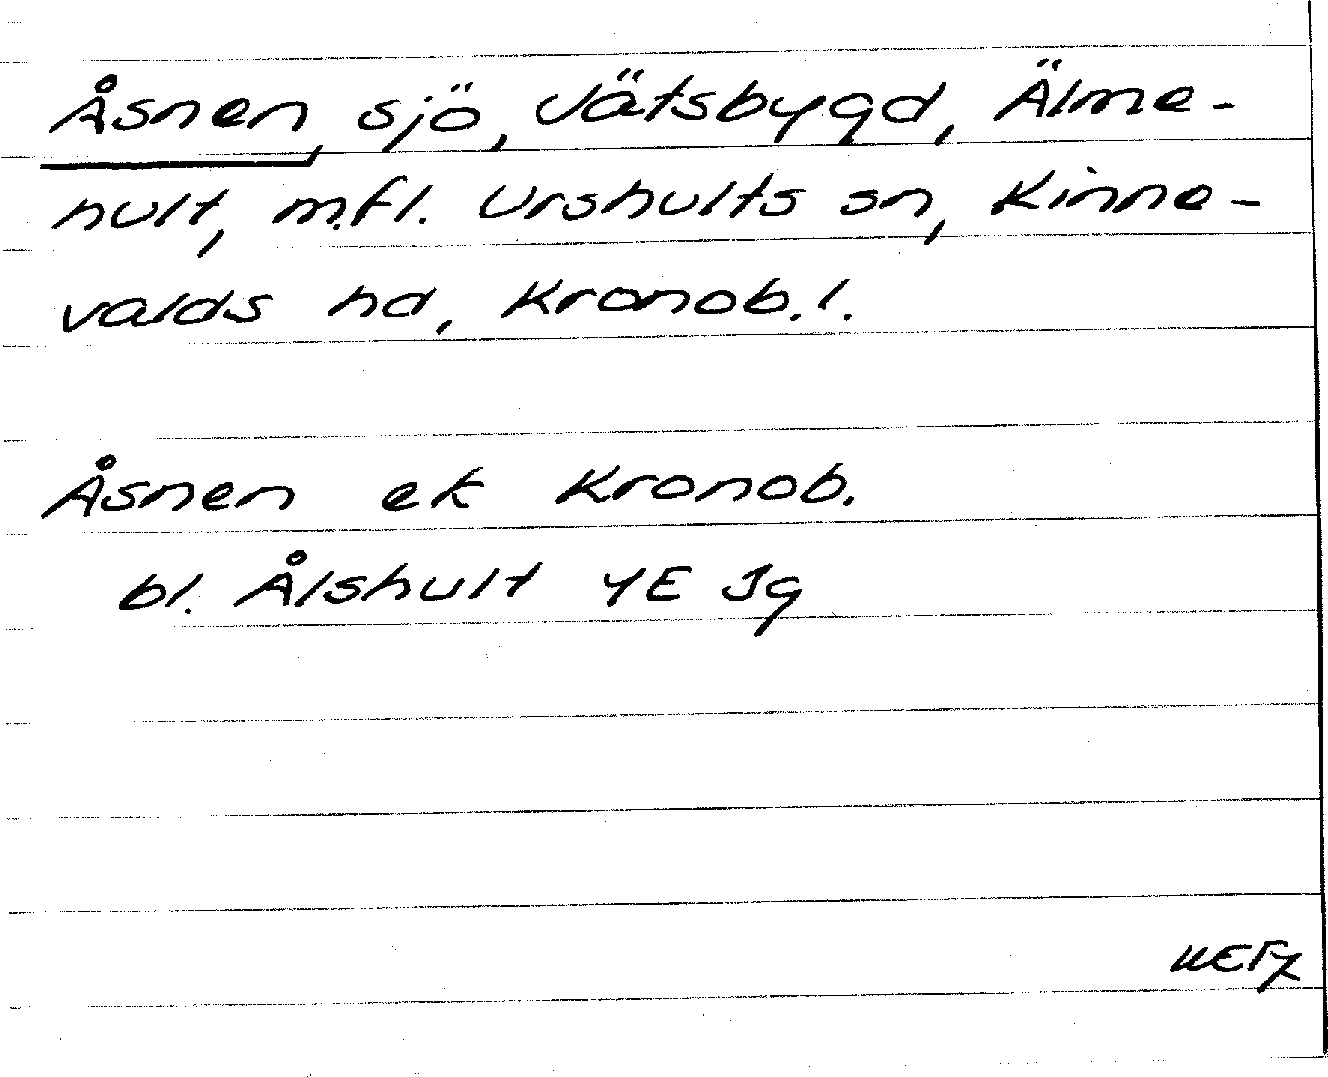 Åsnen, sjö, Jätsbygd, Älme-
hult, m.fl. Urshults sn, Kinne-
valds hd, Kronob. l.
Åsnen ek Kronob.
bl. Ålshult 4E Jg